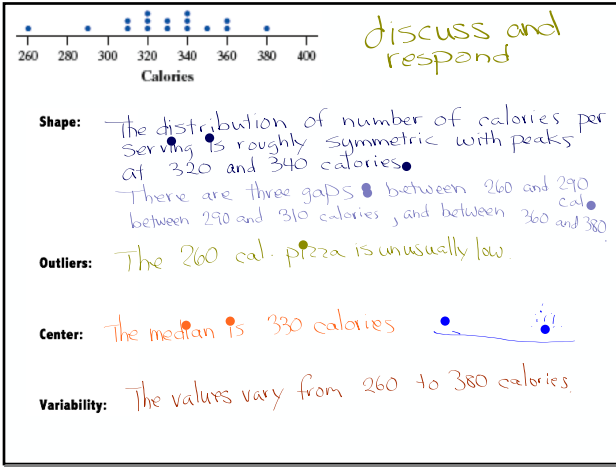 discuss and
respond
260 280 300 320 340 360 380 400
Calories
Shape: The distribution of number of calories per
serving is roughly symmetric with peaks
at 320 and 340 calories.
There are three gaps : between 260 and 290
cal.
between 290 and 310 calories, and between 360 and 380.
Outliers: The 260 cal. pizza is unusually low.
Center: The median is 330 calories
Variability: The values vary from 260 to 380 calories.